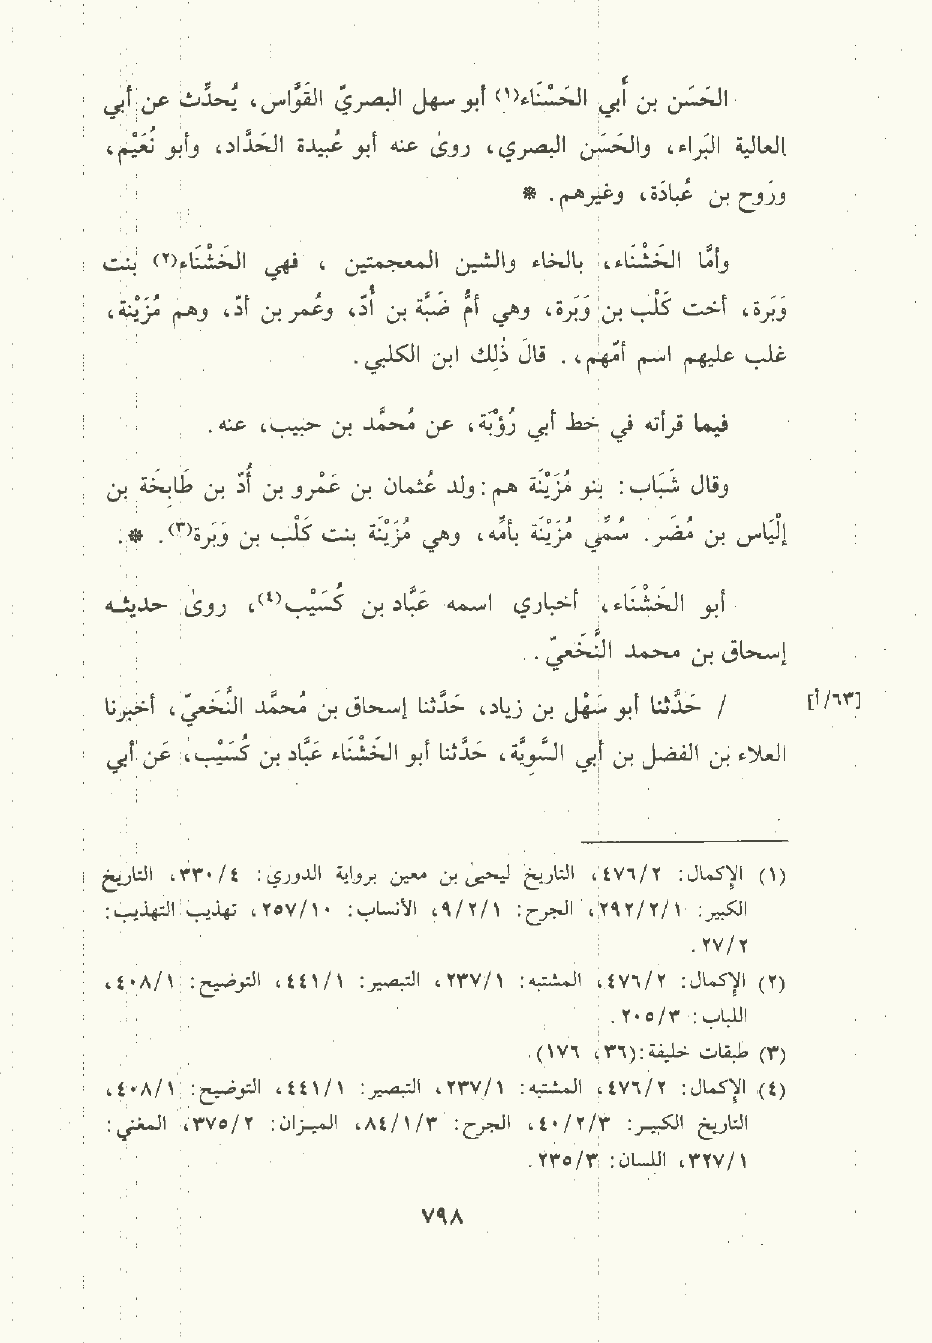 الحَسَن بن أَبي الحَسْنَاء(١) أبو سهل البصريّ القَوَّاس، يُحدِّث عن أبي
العالية البَراء، والحَسَن البصري، روىٰ عنه أبو عُبيدة الحَدَاد، وأبو نُعَيْم،
ورَوح بن عُبادَة، وغيرهم. *
وأمَّا الخَشْنَاء، بالخاء والشين المعجمتين ، فهي الخَشْنَاء(٢) بنت
وَبَرة، أخت كَلْب بن وَبَرة، وهي أمَّ ضَبَّة بن أُدّ، وعمُرو بن أدّ، وهم مُزَيْنة،
غلب عليهم اسم أمّهم، . قالَ ذٰلك ابن الكلبي.
فيما قرأته في خط أبي رُؤْبَة، عن مُحمَّد بن حبيب، عنه.
وقال شَبَاب: بنو مُزَيْنَة هم: ولد عُثمان بن عَمْرو بن أُدّ بن طَابِخَة بن
إلْيَاس بن مُضَر. سُمِّي مُزَيْنَة بأمِّه، وهي مُزَيْنَة بنت كَلْب بن وَبَرة(٣). *.
أبو الخَشْنَاء، أخباري اسمه عَبَّاد بن كُسَيْب(٤)، روىٰ حديثه
إسحاق بن محمد النَّخَعيّ.
[٦٣/أ] / حَدَّثنا أبو سَهْل بن زياد، حَدَّثنا إسحاق بن مُحمَّد النَّخَعيّ، أخبرنا
العلاء بن الفضل بن أبي السَّويَّة، حَدَّثنا أبو الخَشْنَاء عَبَّاد بن كُسَيْب، عَن أبي
(١) الإكمال: ٤٧٦/٢، التاريخ ليحيىٰ بن معين برواية الدوري: ٣٣٠/٤، التاريخ
الكبير: ٢٩٢/٢/١، الجرح: ٩/٢/١، الأنساب: ٢٥٧/١٠، تهذيب التهذيب:
٢٧/٢.
(٢) الإكمال: ٤٧٦/٢، المشتبه: ٢٣٧/١، التبصير: ٤٤١/١، التوضيح: ٤٠٨/١،
اللباب: ٢٠٥/٣.
(٣) طبقات خليفة:(٣٦، ١٧٦).
(٤) الإكمال: ٤٧٦/٢، المشتبه: ٢٣٧/١، التبصير: ٤٤١/١، التوضيح: ٤٠٨/١،
التاريخ الكبير: ٤٠/٢/٣، الجرح: ٨٤/١/٣، الميزان: ٣٧٥/٢، المغني:
٣٢٧/١، اللسان: ٢٣٥/٣.
٧٩٨